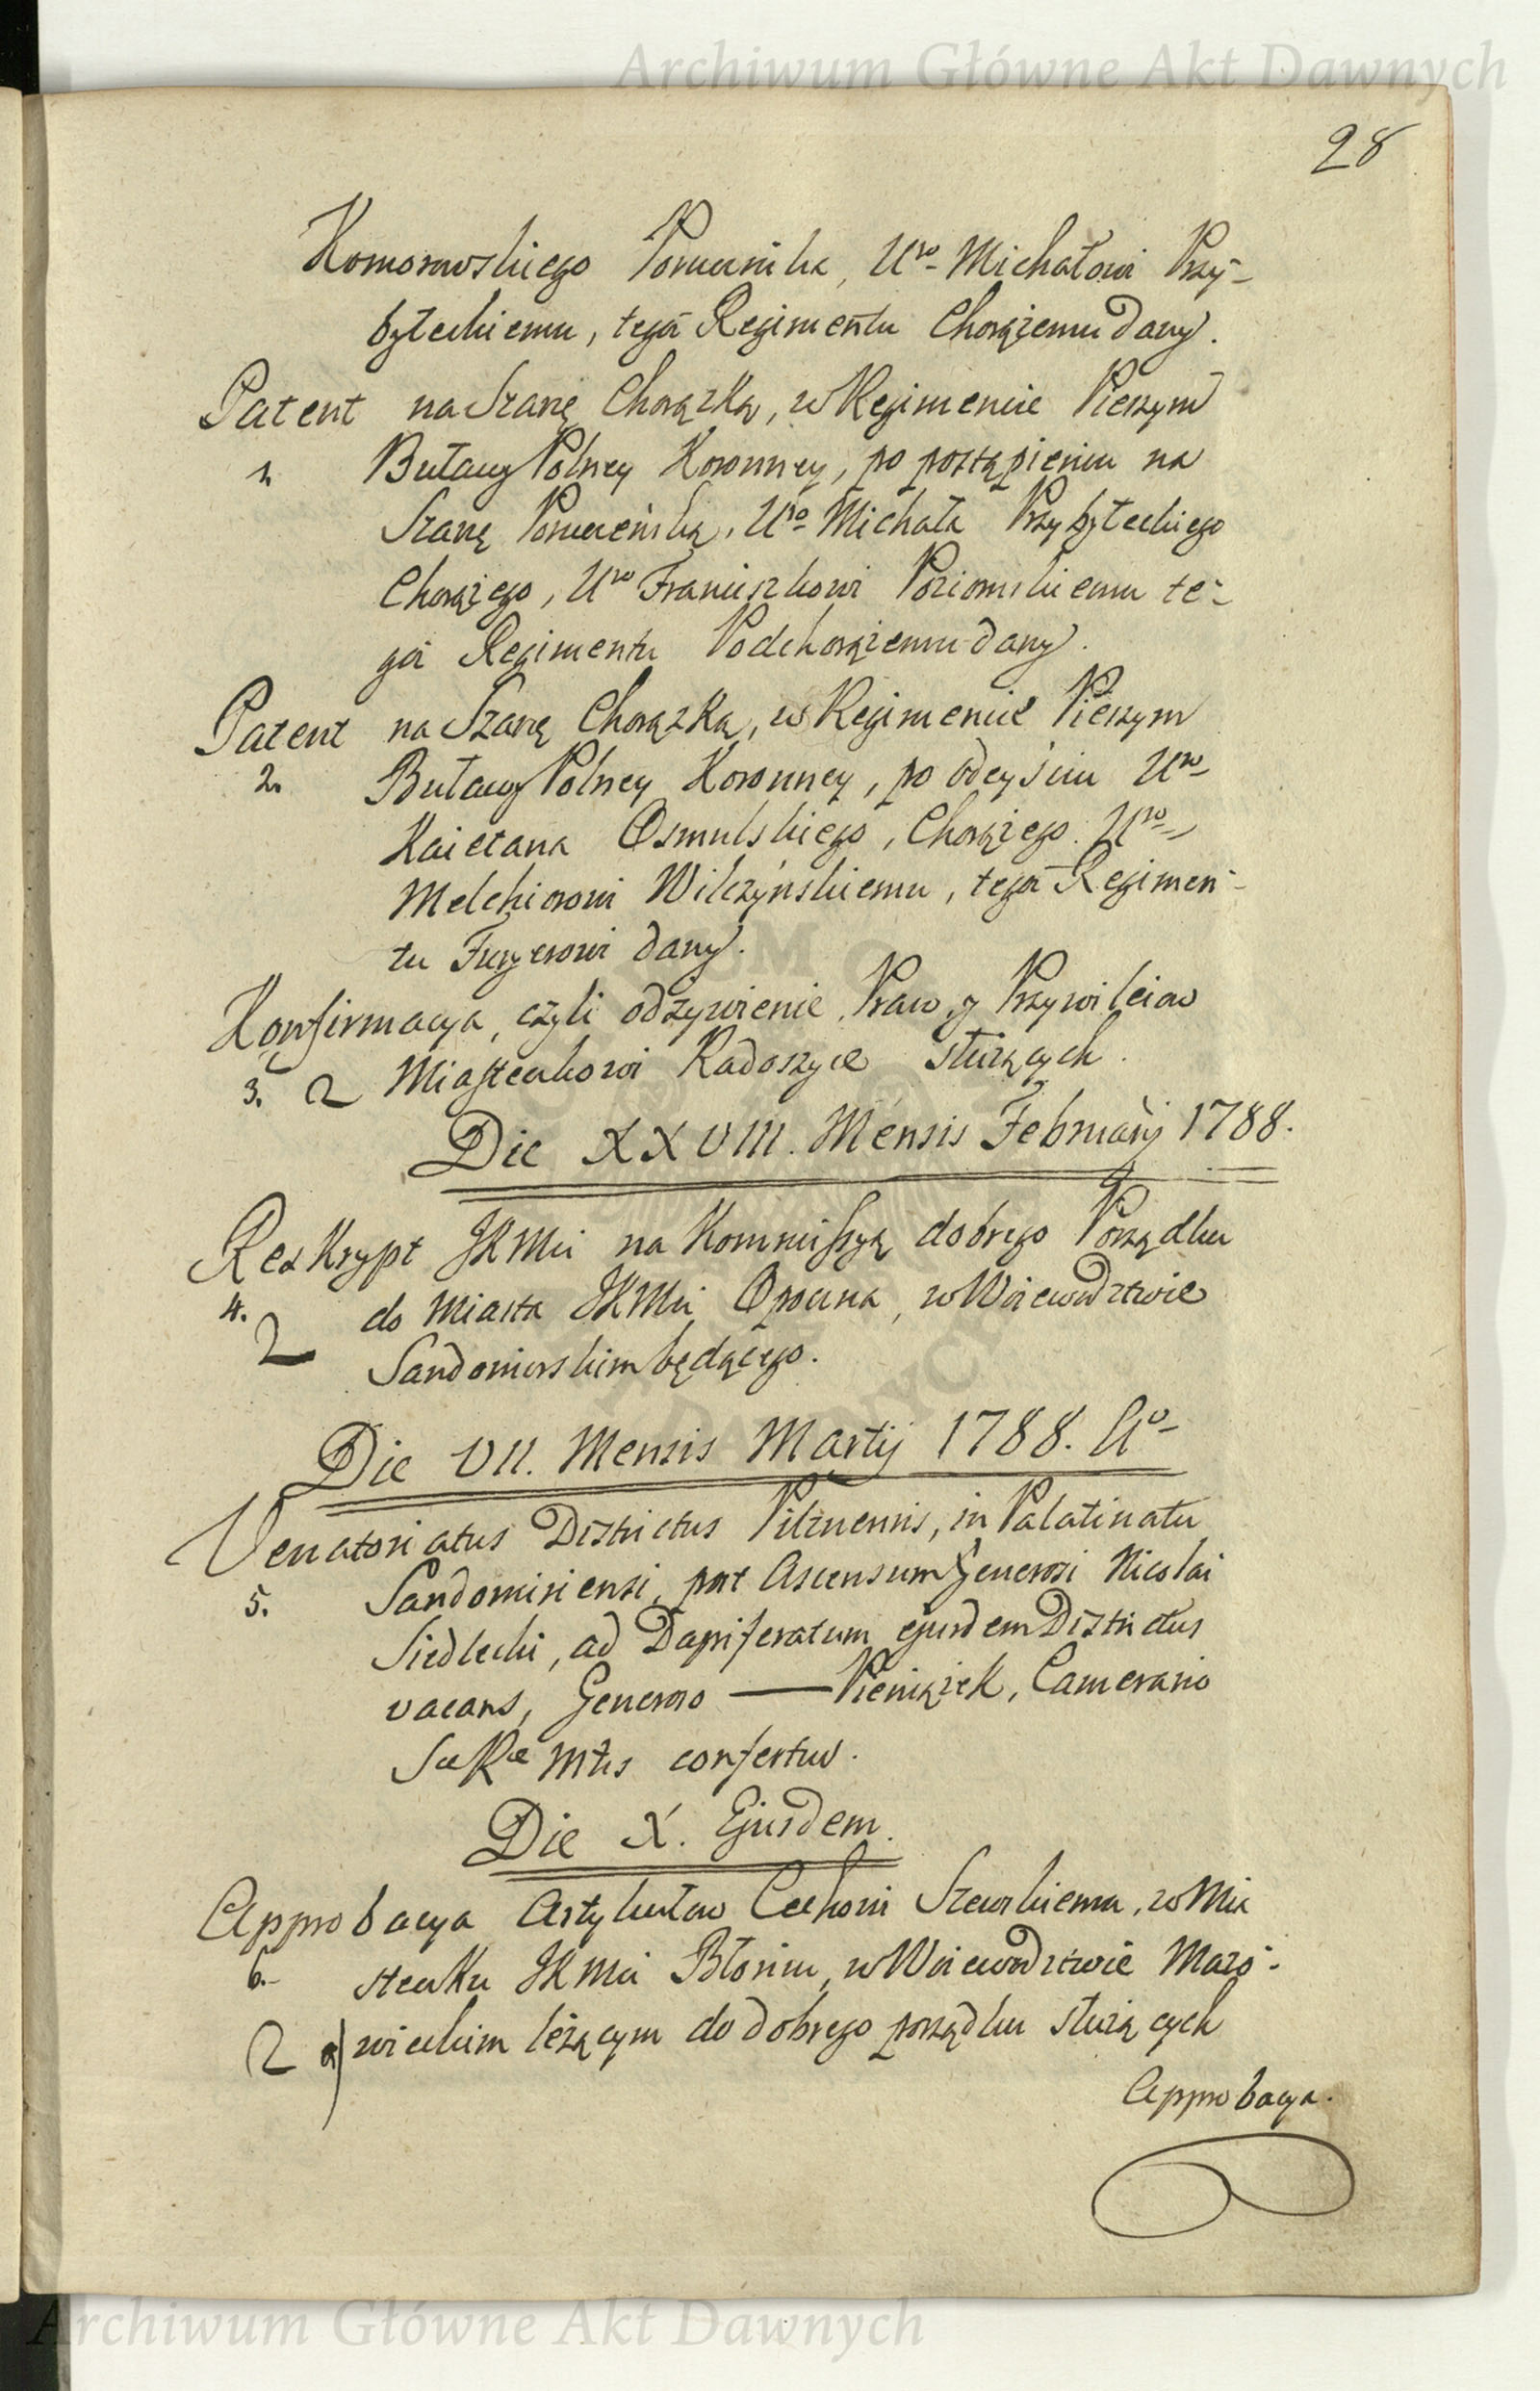 Archiwum Główne Akt Dawnych
28
Komorowskiego Porucznika, Uro Michałowi Przy-
byteckiemu, tegoż Regimentu Chorążemu dany.
Patent na Szarżę Chorążką, w Regimencie Pieszym
1. Buławy Polney Koronney, po postąpieniu na
Szarżę Porucznską, Uro Michała Przybyteckiego
Chorążego, Uro Franciszkowi Poziomskiemu te-
goż Regimentu Podchorążemu dany.
Patent na Szarżę Chorążką, w Regimencie Pieszym
2. Buławy Polney Koronney, po odeyściu Uro
Kaietana Osmulskiego, Chorążego. Uro
Melchiorowi Wilczyńskiemu, tegoż Regimen-
tu Furyerowi dany.
Konfirmacya, czyli odżywienie Praw y Przywileiow
3. 2 Miasteczkowi Radoszyce służących.
Die XXVIII. Mensis Februarij 1788.
Reskrypt JKMci na Kommissyą dobrego Porządku
4. do Miasta JKMci Opoczna, w Woiewodztwie
2 Sandomirskim będącego.
Die VII. Mensis Martij 1788. Ao
Venatoriatus Districtus Pilznensis, in Palatinatu
5. Sandomiriensi, post Ascensum Generosi Nicolai
Siedlecki, ad Dapiferatum ejusdem Districtus
vacans, Generoso — Pieniążek, Camerario
Sæ Ræ Mtis confertur.
Die X. Ejusdem.
Approbacya Artykułow Cechowi Szewskiemu, w Mia
6. steczku JKMci Błoniu, w Woiewodztwie Mazo-
2 a) wieckim leżącym do dobrego porządku służących
Approbacya.
Archiwum Główne Akt Dawnych